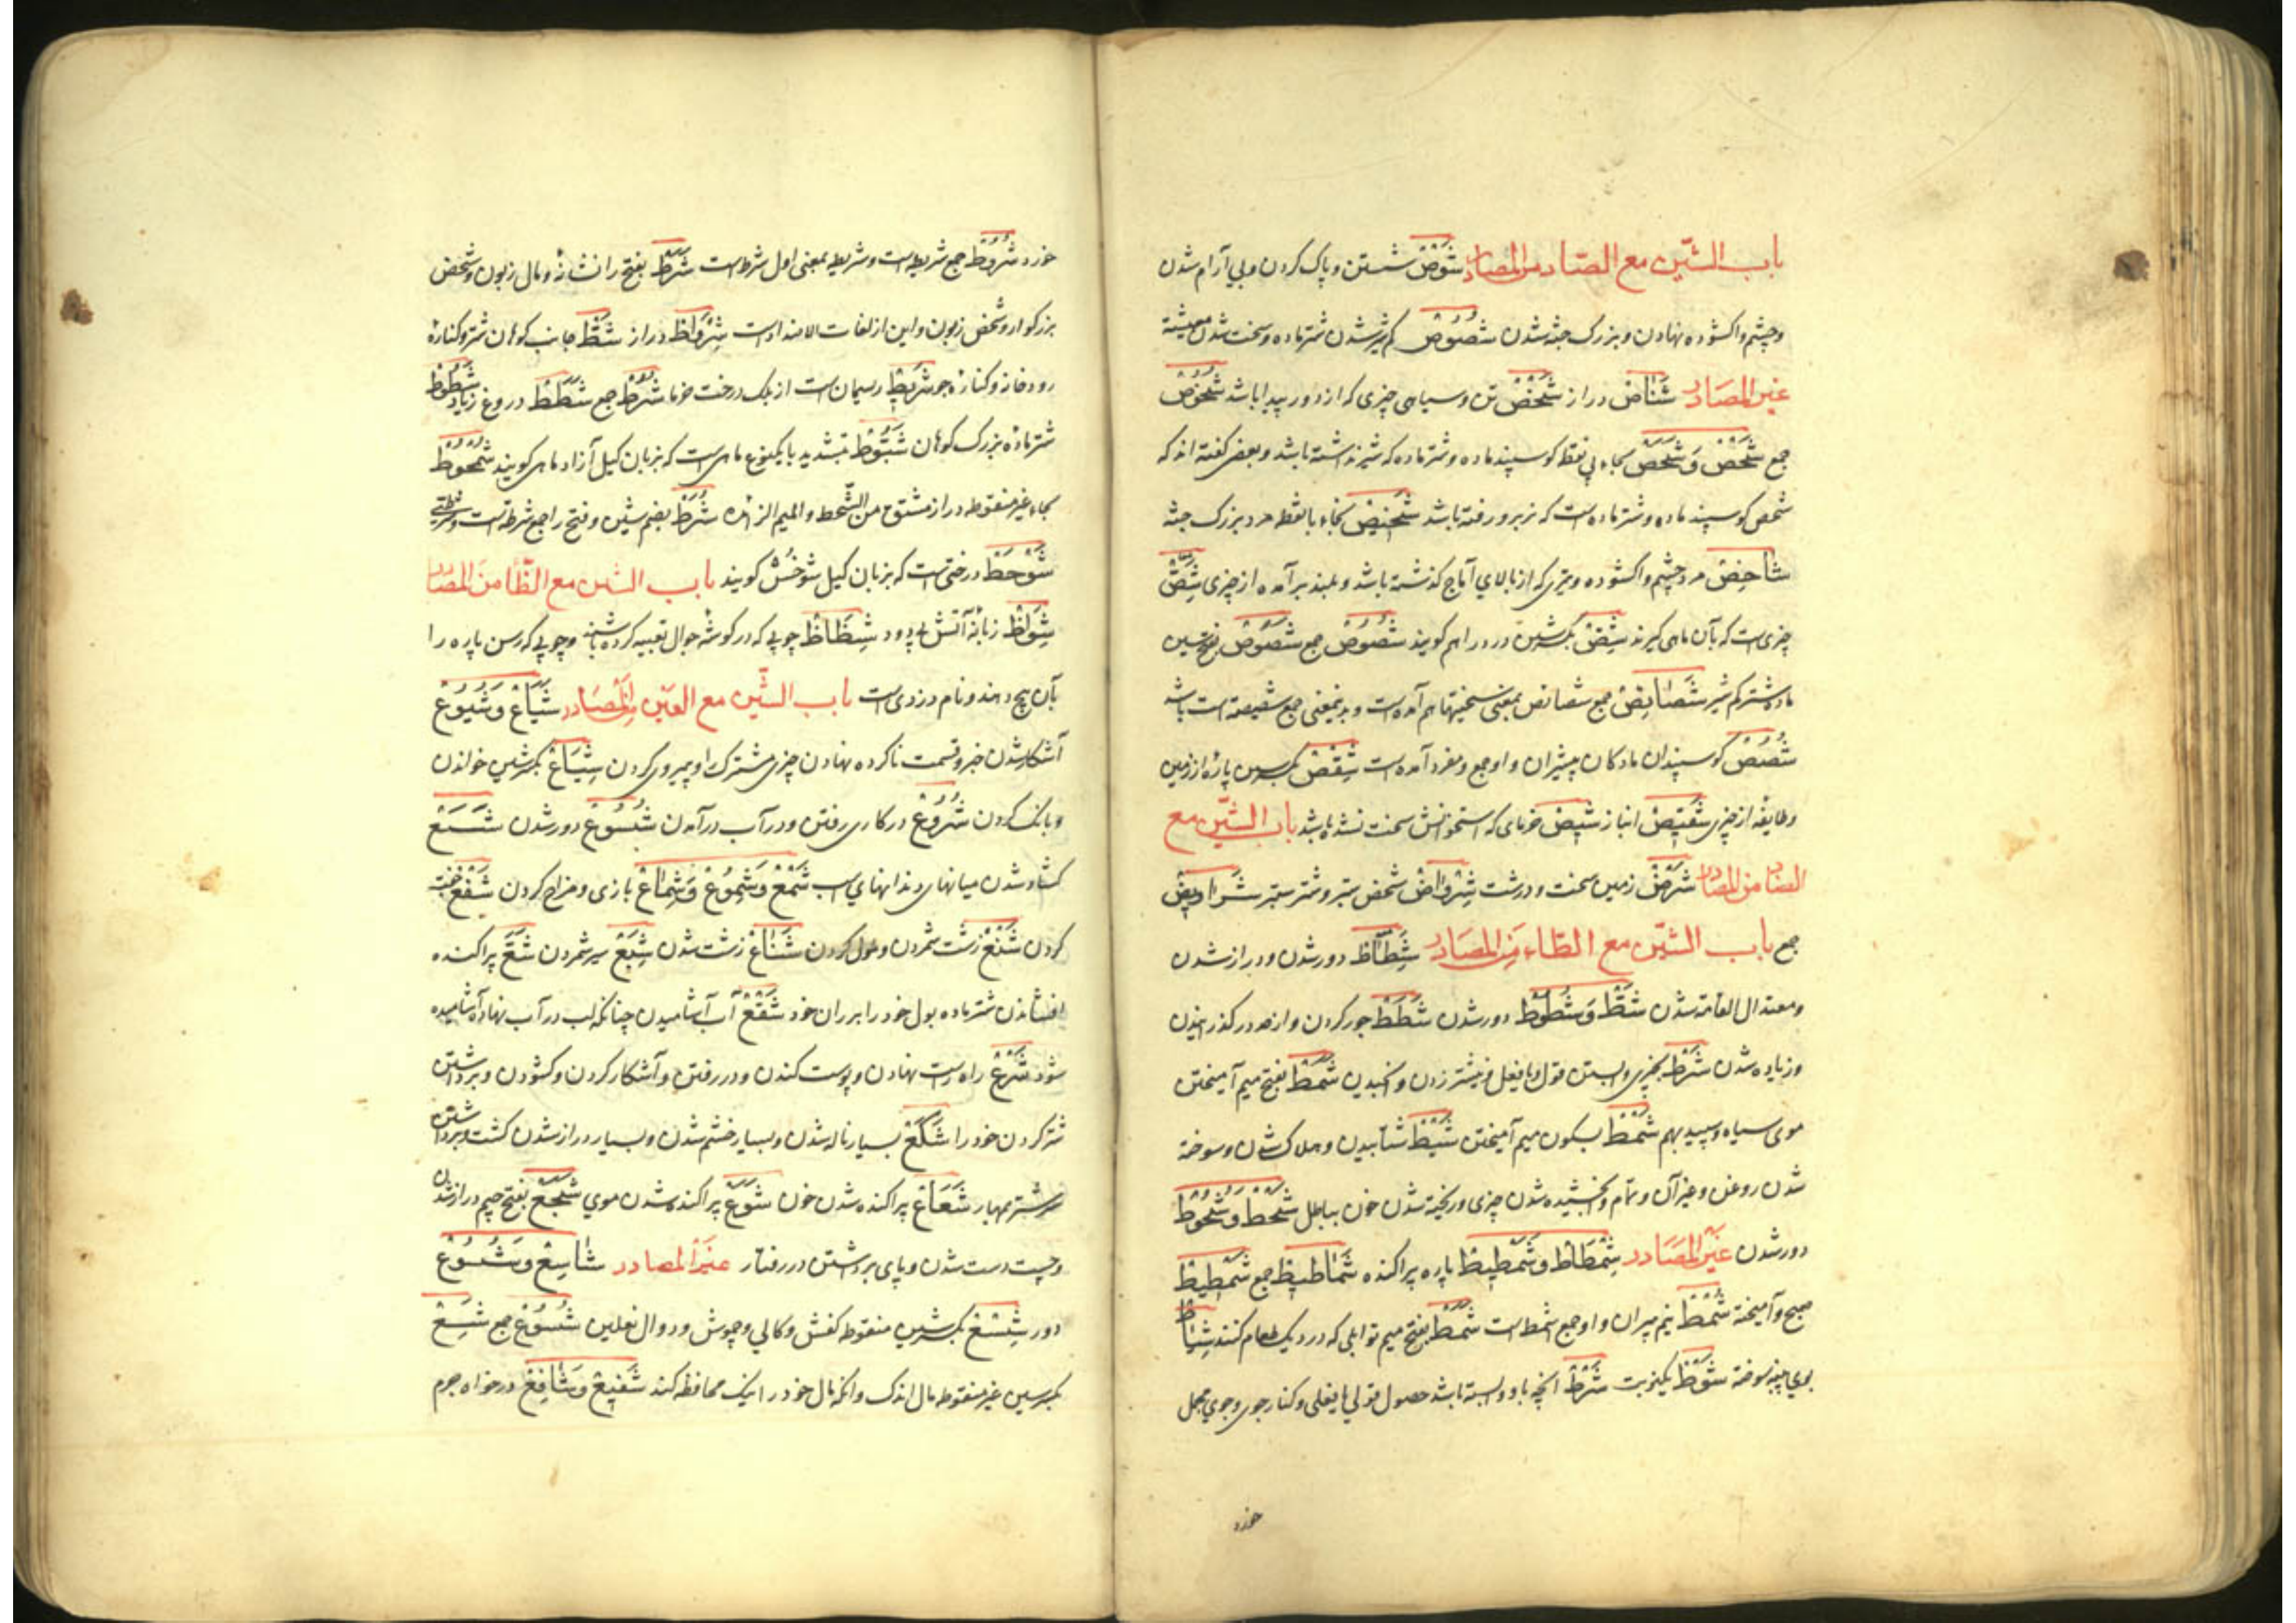 باب الشّین مع الصّاد من المصادر شَوْصٌ شستن و پاک کردن و بی آرام شدن
و چشم واکشوده نهادن و بزرک جثه شدن شُصُوصٌ کم شیر شدن شتر ماده و سخت شدن معیشة
غیر المصادر شَنَاصٌ دراز شَخْصٌ تن و سیاهی چیزی که از دور پیدا باشد شُخُوصٌ
جمع شَحْصٌ وَ شَحَصٌ بحاء بی نقطه کوسپند ماده و شتر ماده که شیر نداشته باشد و بعضی کفته اند که
شحص کوسپند ماده و شتر ماده است که نر برو رفته باشد شَخِیصٌ بخاء با نقطه مرد بزرک جثه
شَاخِصٌ مرد چشم واکشوده و تیری که از بالای آماج کذشته باشد و بلند برآمده از چیزی شِصٌّ
چیزی است که بآن ماهی کیرند شِصٌّ بکسر شین دزد را هم کویند شُصُوصٌ جمع شَصُوصٌ بفتح شین
ماده شتر کم شیر شَصَایِصٌ جمع شصائص بمعنی سختیها هم آمده است و بدینمعنی جمع شصیصة است باشد
شُصُصٌ کوسپندان مادکان بیشیران و او جمع و مفرد آمده است شِقْصٌ بکسر شین پارۀ از زمین
و طایفه از چیزی شَقِیصٌ انباز شِیصٌ خرمای که استخوانش سخت نشده باشد باب الشّین مع
الضاد من المصادر شَرْضٌ زمین سخت و درشت شِرْوَاضٌ شخص ستبر و شتر ستبر شَرَاوِیضٌ
جمع باب الشّین مع الطّاء من المصادر شِطَاطٌ دور شدن و دراز شدن
و معتدل القامة شدن شَطٌّ وَ شُطُوطٌ دور شدن شَطَطٌ جور کردن و از حد در کذرانیدن
و زیاده شدن شَرْطٌ بچیزی وابستن قول یا فعل و نیشتر زدن و مکیدن شَمَطٌ بفتح میم آمیختن
موی سیاه و سپید بهم شَمْطٌ بسکون میم آمیختن شَیْطٌ شتابیدن و هلاک شدن و سوخته
شدن روغن و غیر آن و تمام بخشیده شدن چیزی و ریخته شدن خون بباطل شَحْطٌ وَ شُحُوطٌ
دور شدن غیر المصادر شِمْطَاطٌ وَ شِمْطِیطٌ پاره پراکنده شَمَاطِیطٌ جمع شَمِیطٌ
صبح و آمیخته شُمْطٌ نیم پیران و او جمع اشمط است شَمَطٌ بفتح میم توابلی که در دیک طعام کنند شِیَاطٌ
بوی پنبه سوخته شَوْطٌ یکنوبت شَرْطٌ آنچه باو وابسته باشد حصول قولی یا فعلی و کنار جوی و جوی مجمل
خورد
خورد شُرُوطٌ جمع شریط است و شریط بمعنی اول شرط است شَرَطٌ بفتح را نشانه و مال زبون و شخص
بزرکوار و شخص زبون و این از لغات الاضداد است شِرْوَاطٌ دراز شَطٌّ جانب کوهان شتر و کنارۀ
رودخانه و کنارۀ جو شَرِیطٌ ریسمان است از برک درخت خرما شُرُطٌ جمع شَطَطٌ دروغ زیاد شَطُوطٌ
شتر مادۀ بزرک کوهان شَبُّوطٌ بتشدید با یکنوع ماهی است که بزبان کیل آزاد ماهی کویند شُمْحُوطٌ
بحاء غیر منقوطه دراز مشتق من الشّحط و المیم الزائده شُرَطٌ بضم شین و فتح را جمع شرطة است و شرطتی
شَوْحَطٌ درختی است که بزبان کیل شوخش کویند باب الشین مع الظّاء من المصادر
شِوَاظٌ زبانۀ آتش بی دود شِظَاظٌ چوبی که در کوشۀ جوال تعبیه کرده باشند و چوبی که رسن پاره را
بآن پیچ دهند و نام دزدی است باب الشّین مع العین من المصادر شِیَاعٌ وَ شُیُوعٌ
آشکار شدن خبر و قسمت ناکرده نهادن چیزی مشترک را و پیروی کردن شِیَاعٌ بکسر شین خواندن
و بانک کردن شُرُوعٌ در کاری رفتن و در آب درآمدن شُسُوعٌ دور شدن شَسَعٌ
کشاده شدن میانهای دندانهای اسب شَمْعٌ وَ شُمُوعٌ وَ شِمَاعٌ بازی و مزاح کردن شَفْعٌ جفت
کردن شَنْعٌ زشت شمردن و طول کردن شَنَاعٌ زشت شدن شِبَعٌ سیر شدن شَعٌّ پراکنده
افشاندن شتر ماده بول خود را بر ران خود شَقْعٌ آب آشامیدن چنانکه لب در آب نهاده آشامیده
شود شَرْعٌ راه راست نهادن و پوست کندن و در رفتن و آشکار کردن و کشودن و برداشتن
شتر کردن خود را شَکَعٌ بسیار ناله شدن و بسیار خشم شدن و بسیار دراز شدن کشت و برداشتن
سر شتر بمهار شَعَاعٌ پراکنده شدن خون شَوَعٌ پراکنده شدن موی شَجَعٌ بفتح جیم دراز شدن
و چست دست شدن و پای برداشتن در رفتار غیر المصادر شَاسِعٌ وَ شَسُوعٌ
دور شِسْعٌ بکسر شین منقوطه کفش و کالی و چپوش و دوال نعلین شُسُوعٌ جمع شِسْعٌ
بکسر سین غیر منقوطه مال اندک و آنکه مال خود را نیک محافظه کند شَفِیعٌ وَ شَافِعٌ درخواه جرم